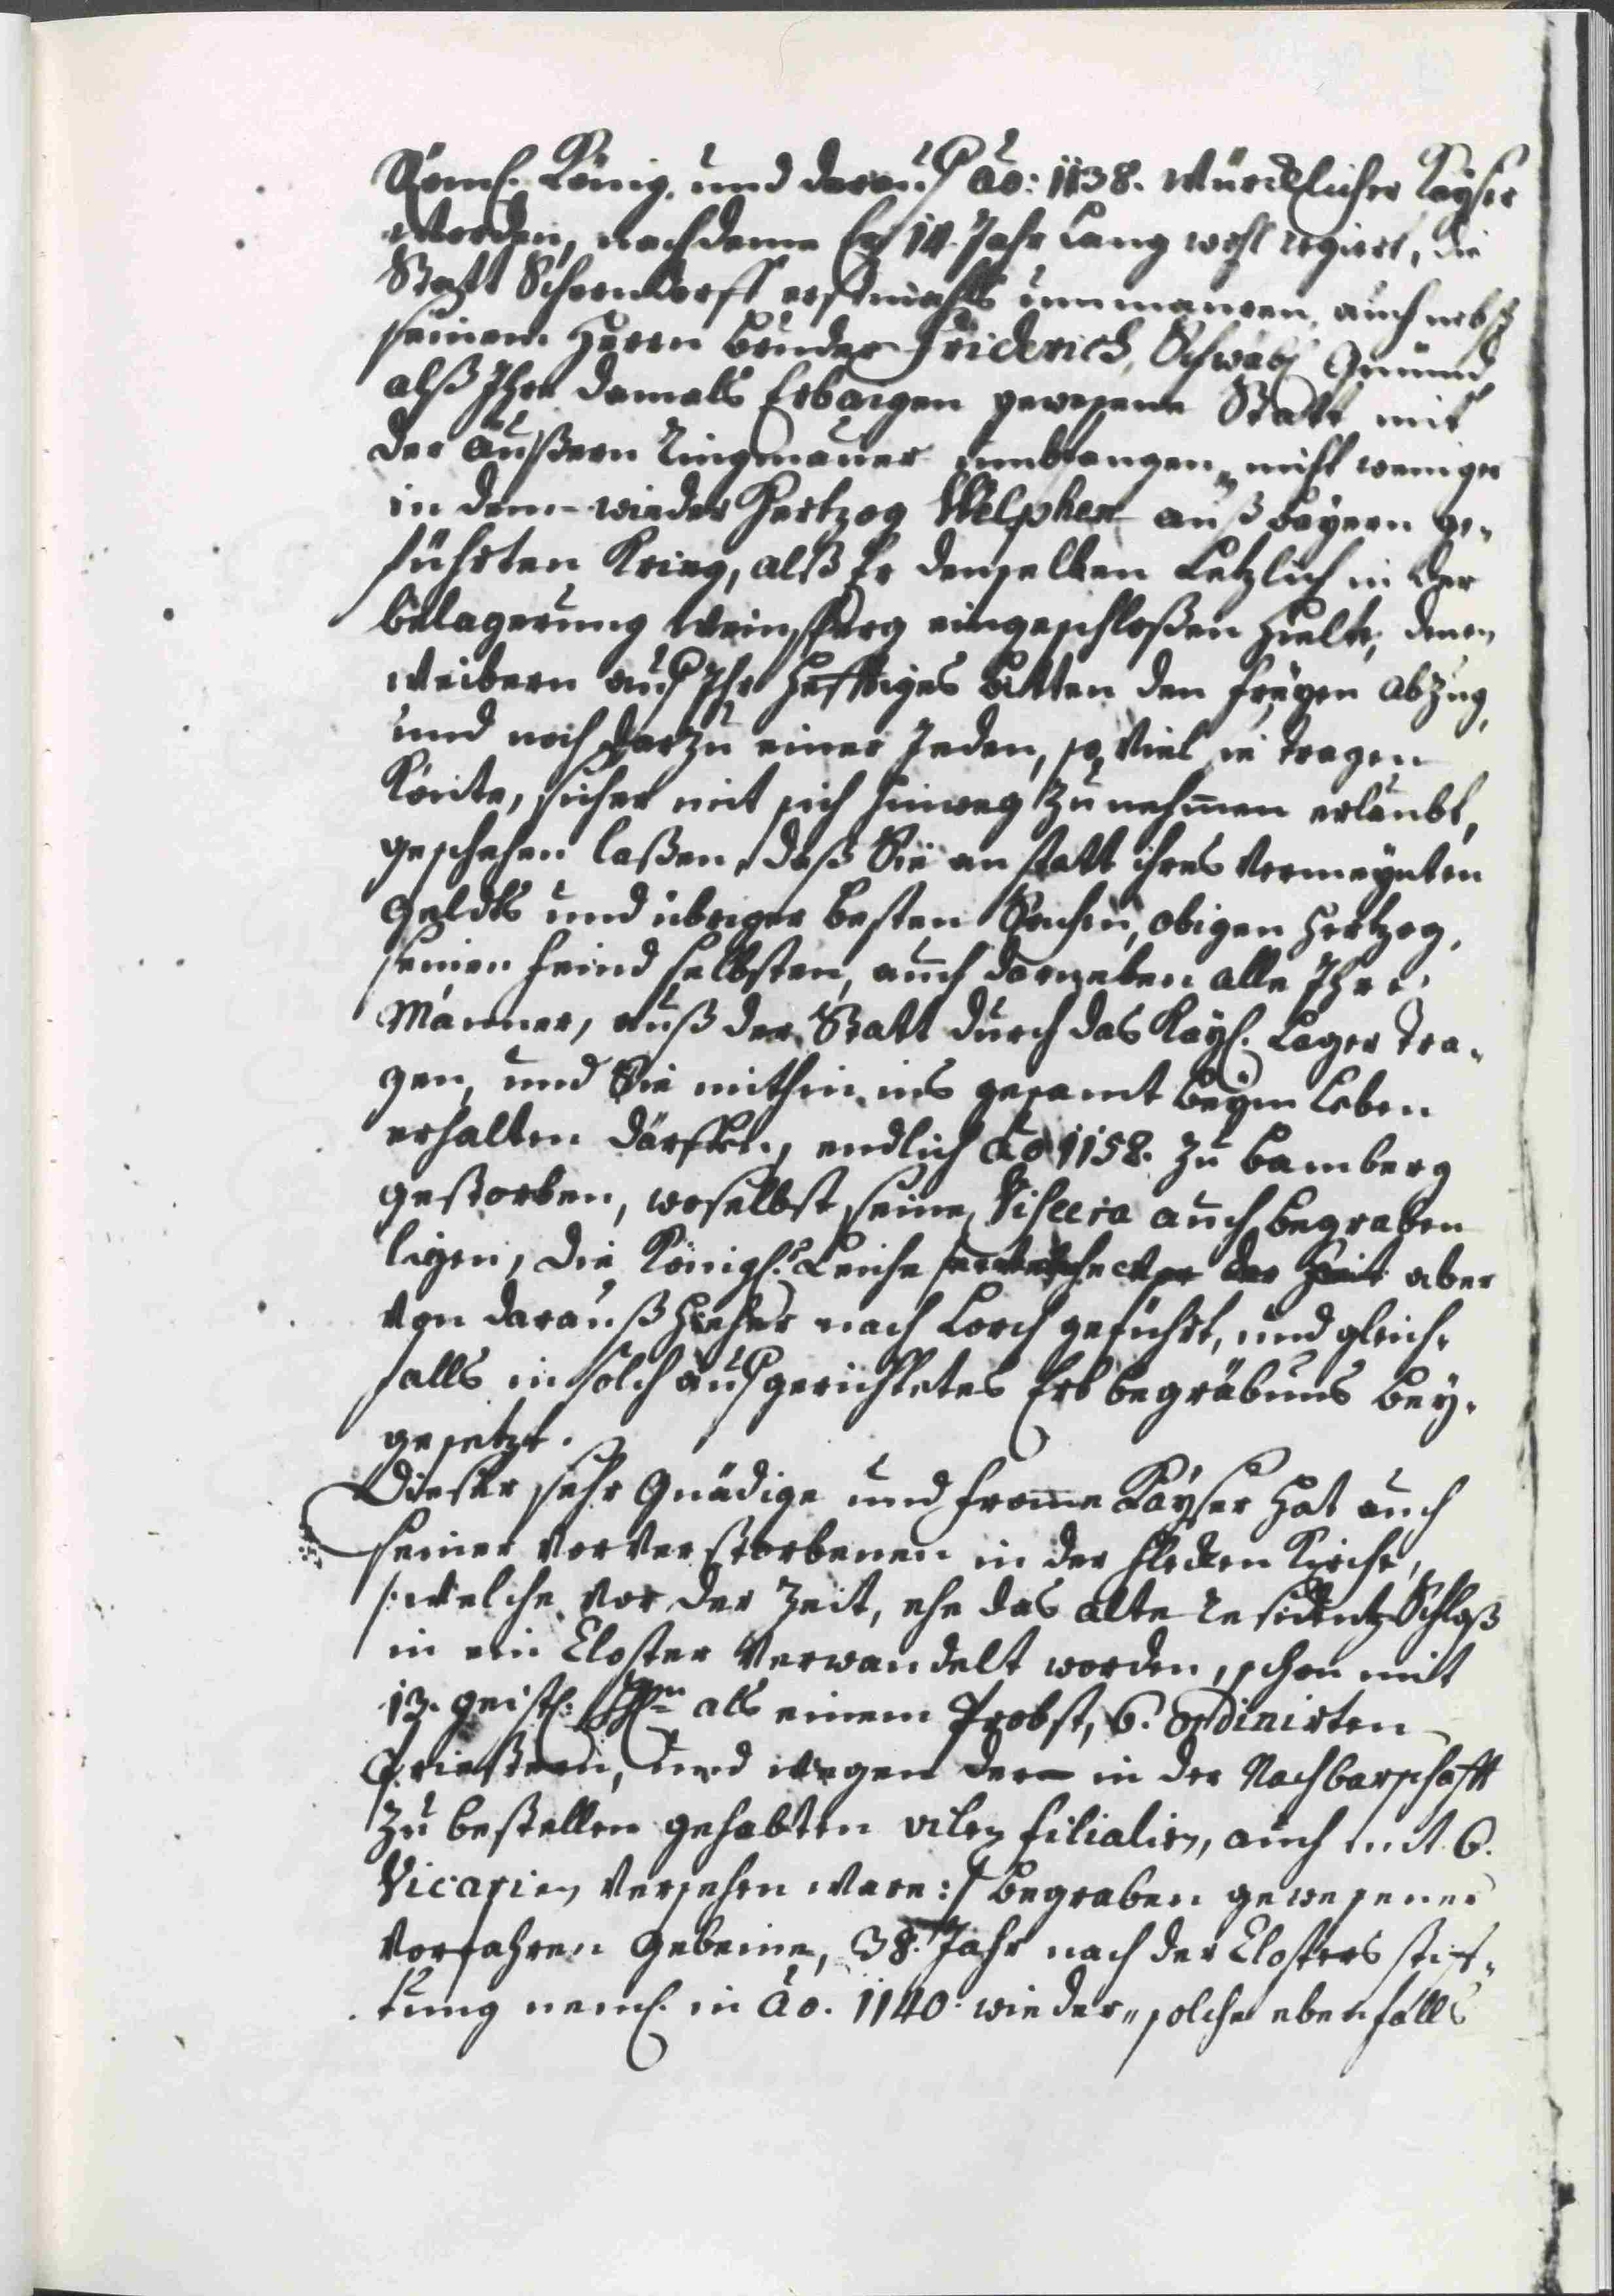 Römsch. König, und darauf Ao: 1138. würcklicher Kayser
worden, nachdeme Er 14. Jahr Lang wohl regiert, die
Statt Schorndorff erstmahls ummauren, auch nebst
seinem Herrn Bruder Friderich, Schwäb. Gmünd
alß Ihre damals Erbaigen gewesene Statt mit
der äußern Ringmauer umbfangen, nicht weniger
in dem wieder Hertzog Welphen auß Bayern ge-
führten Krieg, alß Er denselben Letzlich in der
Belagerung Weinsperg eingeschloßen hielte, denen
Weibern auf Ihr hefftiges Bitten den freyen abzug,
und noch darzu einer Jeden, so viel sie tragen
Könte, sicher mit sich hinweg zu nehmen erlaubt,
geschehen laßen, daß Sie an statt ihres vermeynten
Geldts und übriger besten Sachen, obigen Hertzog,
seinen feind selbsten, auch darneben alle Ihre
Männer, auß der Statt durch das Kays. Lager tra-
gen, und Sie mithin ins gesamt beym Leben
erhalten därffen, endlich Ao 1158. zu Bamberg
gestorben, woselbst seine Viscera auch begraben
ligen, die Königl. Leiche aber
von darauß hieher nach Lorch geführt, und gleich-
falls in solch aufgerichtetes Erbbegräbnus bey-
gesetzt.
Dieser sehr Gnädige und fromme Kayser hat auch
seiner vorverstorbenen in der flecken Kirche,
/: welche vor der Zeit, ehe das alte residentz Schloß
in ein Closter verwandelt worden, schon mit
13. geistl. Hhn als einem Probst, 6. ordinirten
Priestern, und wegen der in der Nachbarschafft
zu bestellen gehabten vilen filialien, auch mit 6.
Vicarien versehen ware :/ begraben gewesener
Vorfahren Gebeine, 38. Jahr nach der Closters stif-
tung neml. in Ao. 1140. wieder, solche ebenfalls